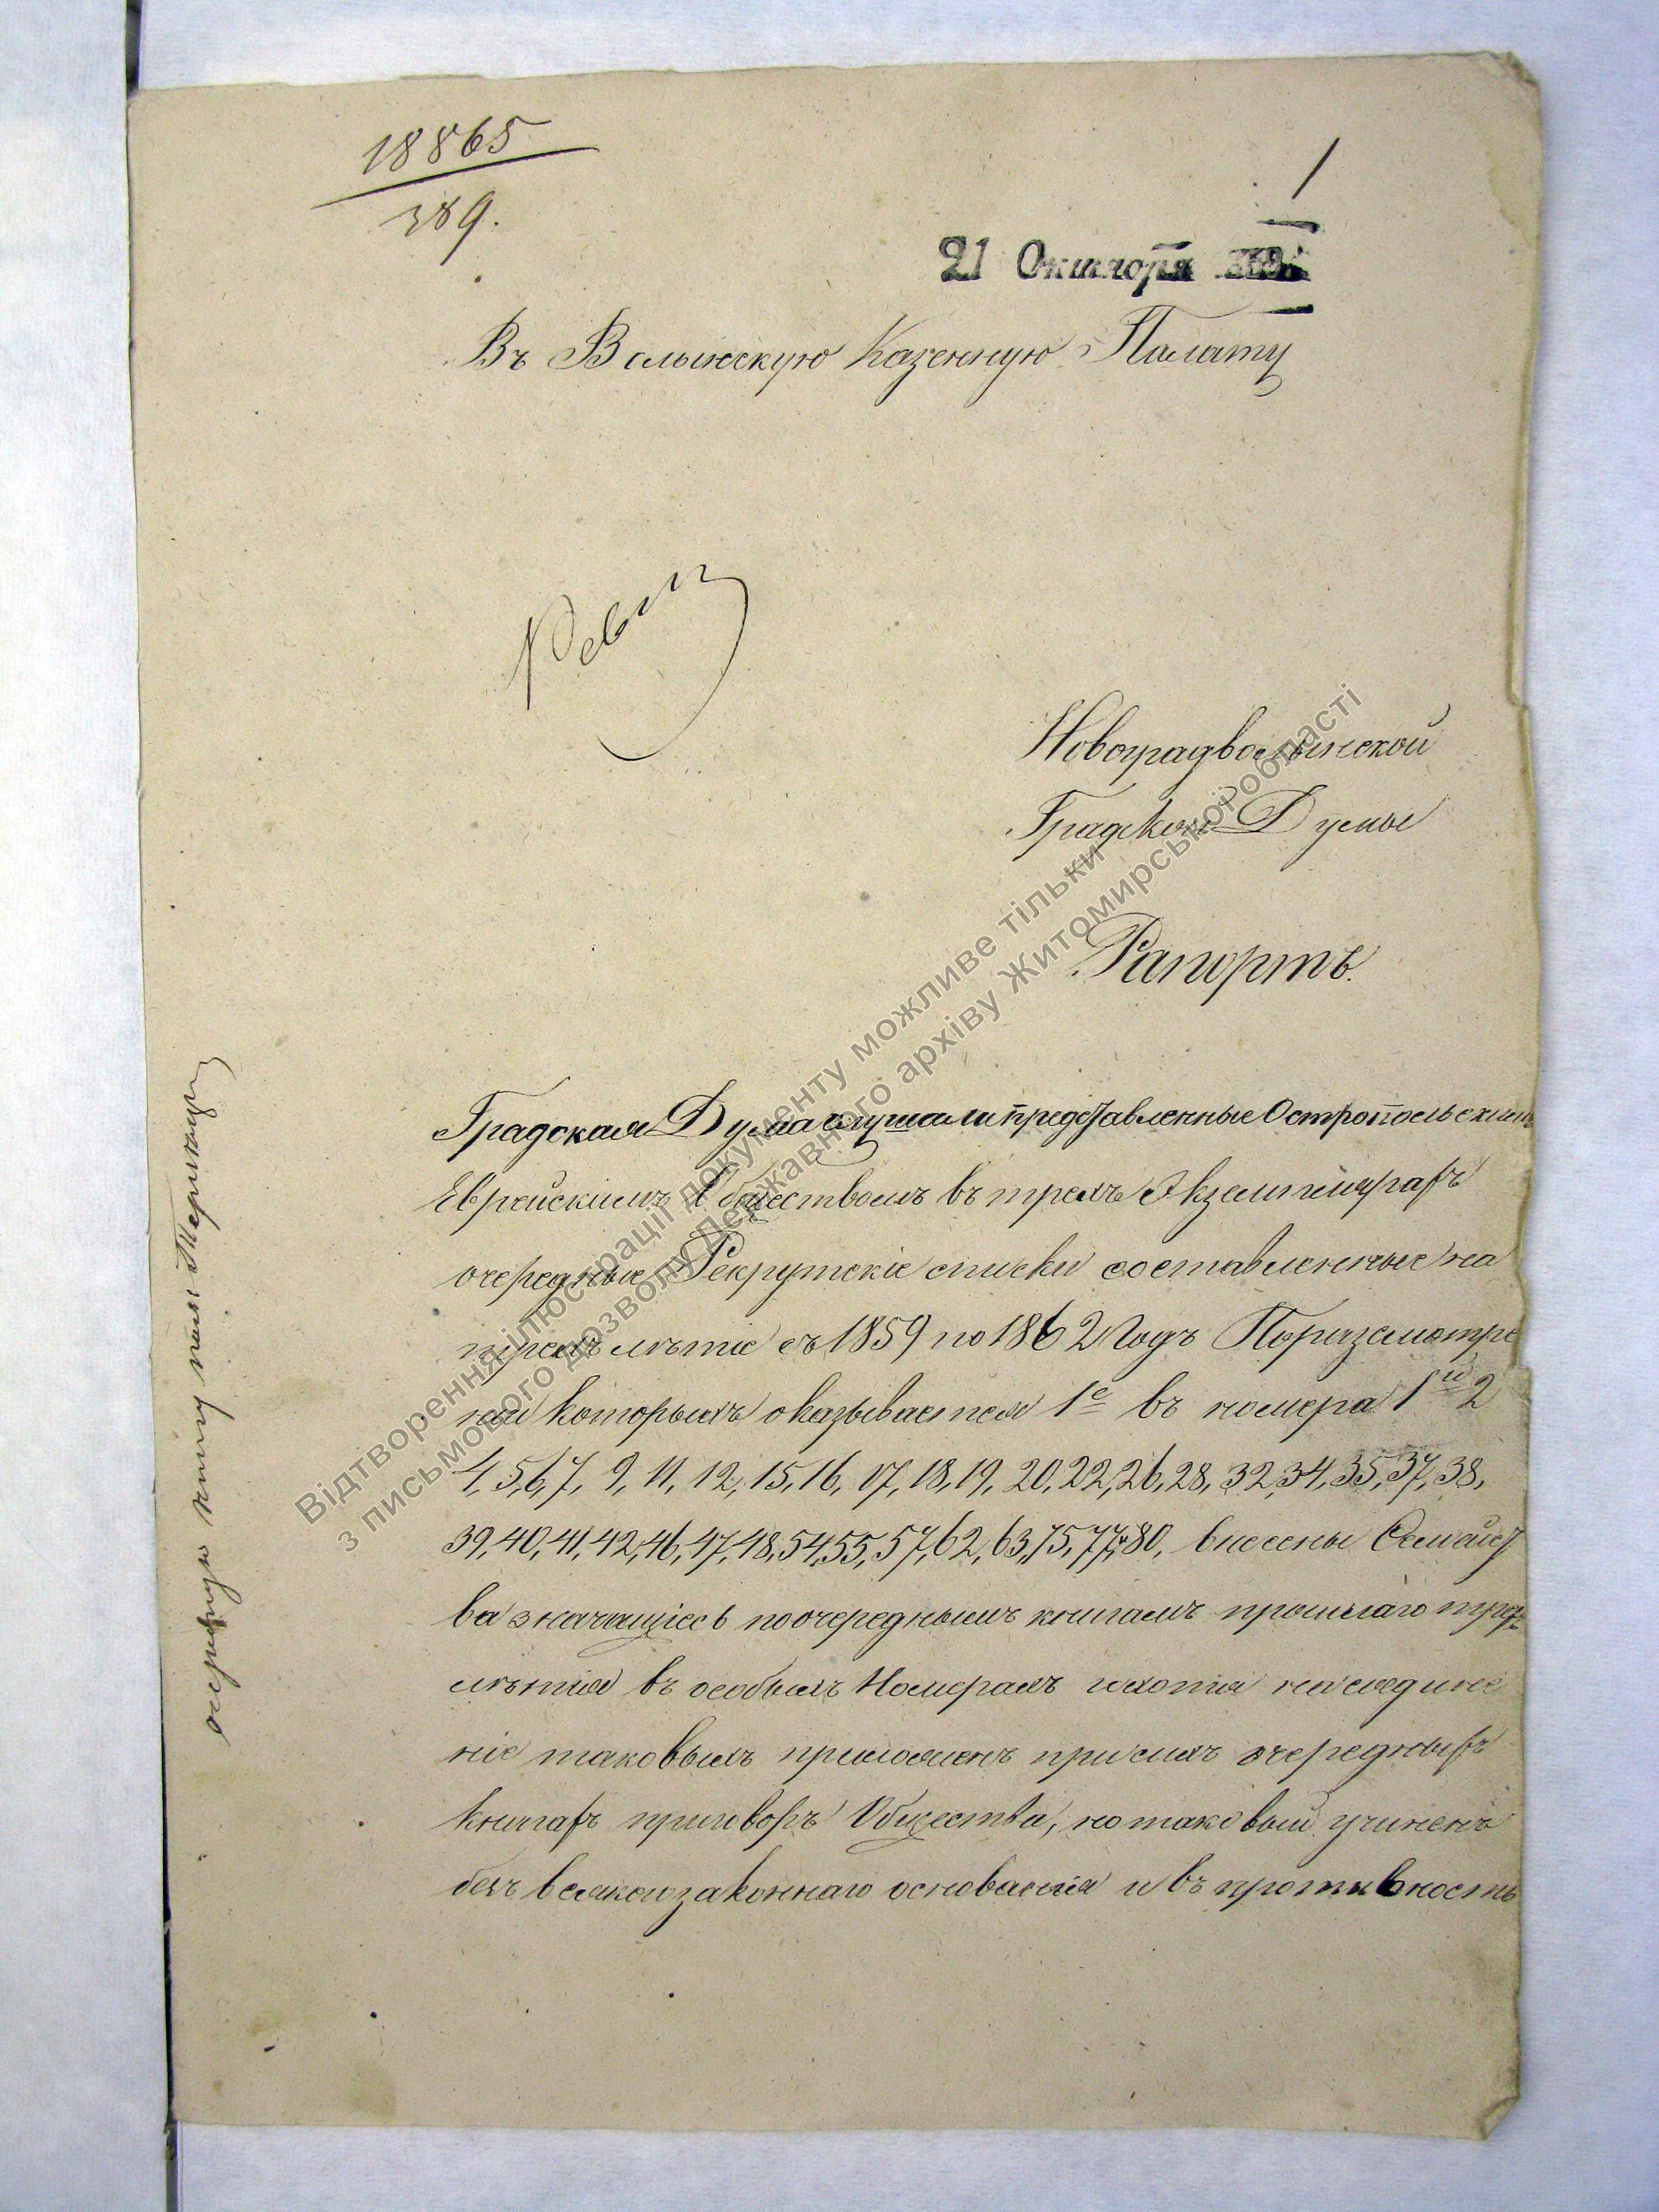 18865
389.
1
21 Октября
Въ Волынскую Казенную Палату
Новоградволынской
Градской Думы
Рапортъ.
Градская Дума слушали представленные Остропольскимъ
Еврейскимъ Обществомъ въ трехъ Экземплярахъ
очередные Рекрутскіе списки составленные на
трехъ лѣтіе съ 1859 по 1862 Годъ По разсмотре
ніи которыхъ оказывается 1е въ номера 1й 2
4, 5, 6, 7, 9, 11, 12, 15, 16, 17, 18, 19, 20, 22, 26, 28, 32, 34, 35, 37, 38,
39, 40, 41, 42, 46, 47, 48, 54, 55, 57, 62, 63, 75, 77, 80, внесены Семейст
ва значащіесь по очереднымъ книгамъ прошлаго трех
лѣтія въ особыхъ Номерахъ и хотя на соедине
ніе таковыхъ приложенъ при сихъ очередныхъ
книгахъ приговоръ Общества, но таковый учиненъ
безъ всякого законнаго основанія и въ противность
Відтворення ілюстрації документу можливе тільки
з письмового дозволу Державного архіву Житомирської області